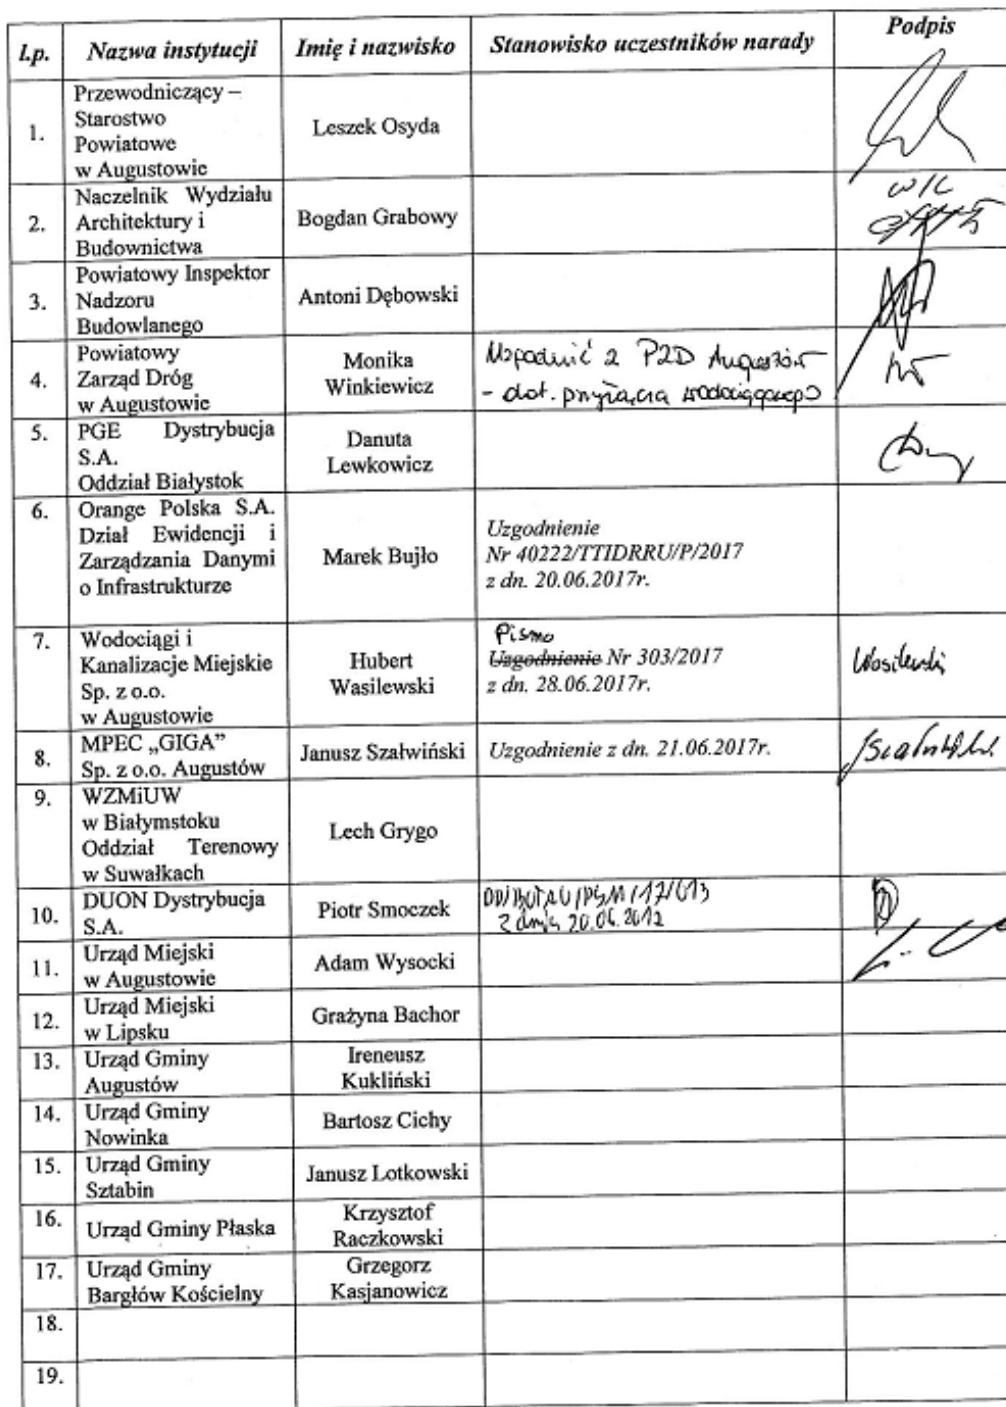 Lp. Nazwa instytucji Imię i nazwisko Stanowisko uczestników narady Podpis
1. Przewodniczący –
Starostwo
Powiatowe
w Augustowie
Leszek Osyda
2. Naczelnik Wydziału
Architektury i
Budownictwa
Bogdan Grabowy
w/c
3. Powiatowy Inspektor
Nadzoru
Budowlanego
Antoni Dębowski
4. Powiatowy
Zarząd Dróg
w Augustowie
Monika
Winkiewicz
Uzgodnić z PZD Augustów
- dot. przyłącza wodociągowego
5. PGE Dystrybucja
S.A.
Oddział Białystok
Danuta
Lewkowicz
6. Orange Polska S.A.
Dział Ewidencji i
Zarządzania Danymi
o Infrastrukturze
Marek Bujło
Uzgodnienie
Nr 40222/TTIDRRU/P/2017
z dn. 20.06.2017r.
7. Wodociągi i
Kanalizacje Miejskie
Sp. z o.o.
w Augustowie
Hubert
Wasilewski
Pismo
Uzgodnienie Nr 303/2017
z dn. 28.06.2017r.
Wasilewski
8. MPEC „GIGA”
Sp. z o.o. Augustów
Janusz Szałwiński
Uzgodnienie z dn. 21.06.2017r.
9. WZMiUW
w Białymstoku
Oddział Terenowy
w Suwałkach
Lech Grygo
10. DUON Dystrybucja
S.A.
Piotr Smoczek
z dnia 20.06.2017
11. Urząd Miejski
w Augustowie
Adam Wysocki
12. Urząd Miejski
w Lipsku
Grażyna Bachor
13. Urząd Gminy
Augustów
Ireneusz
Kukliński
14. Urząd Gminy
Nowinka
Bartosz Cichy
15. Urząd Gminy
Sztabin
Janusz Lotkowski
16. Urząd Gminy Płaska
Krzysztof
Raczkowski
17. Urząd Gminy
Bargłów Kościelny
Grzegorz
Kasjanowicz
18.
19.